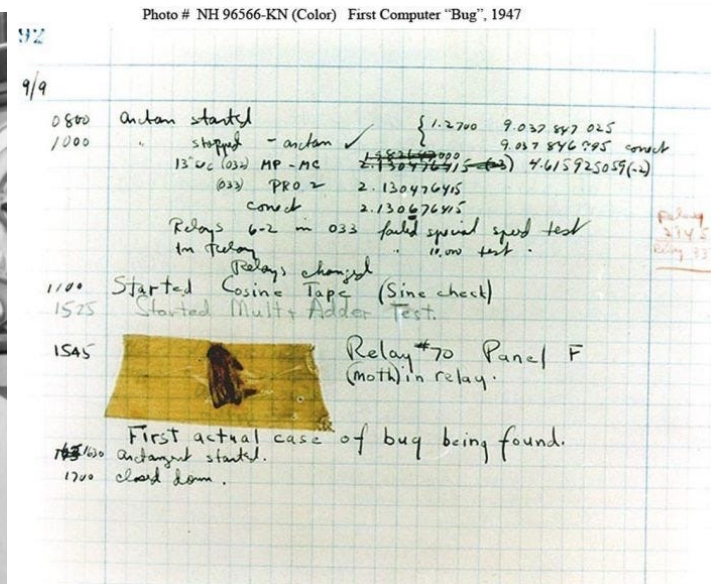 Photo # NH 96566-KN (Color) First Computer “Bug”, 1947
92
9/9
0800 Antan started { 1.2700 9.037 847 025
1000 " stopped - antan ✓ 9.037 846 995 conect
13"uc (032) MP - MC 2.130476415 (-3) 4.615925059(-2)
(033) PRO 2 2.130476415
conect 2.130676415
Relays 6-2 in 033 failed special speed test
In " 10,000 test .
Relays changed
1100 Started Cosine Tape (Sine check)
1525 Started Mult + Adder Test.
1545 Relay #70 Panel F
(moth) in relay.
First actual case of bug being found.
1630 antangent started.
1700 closed down .
Relay